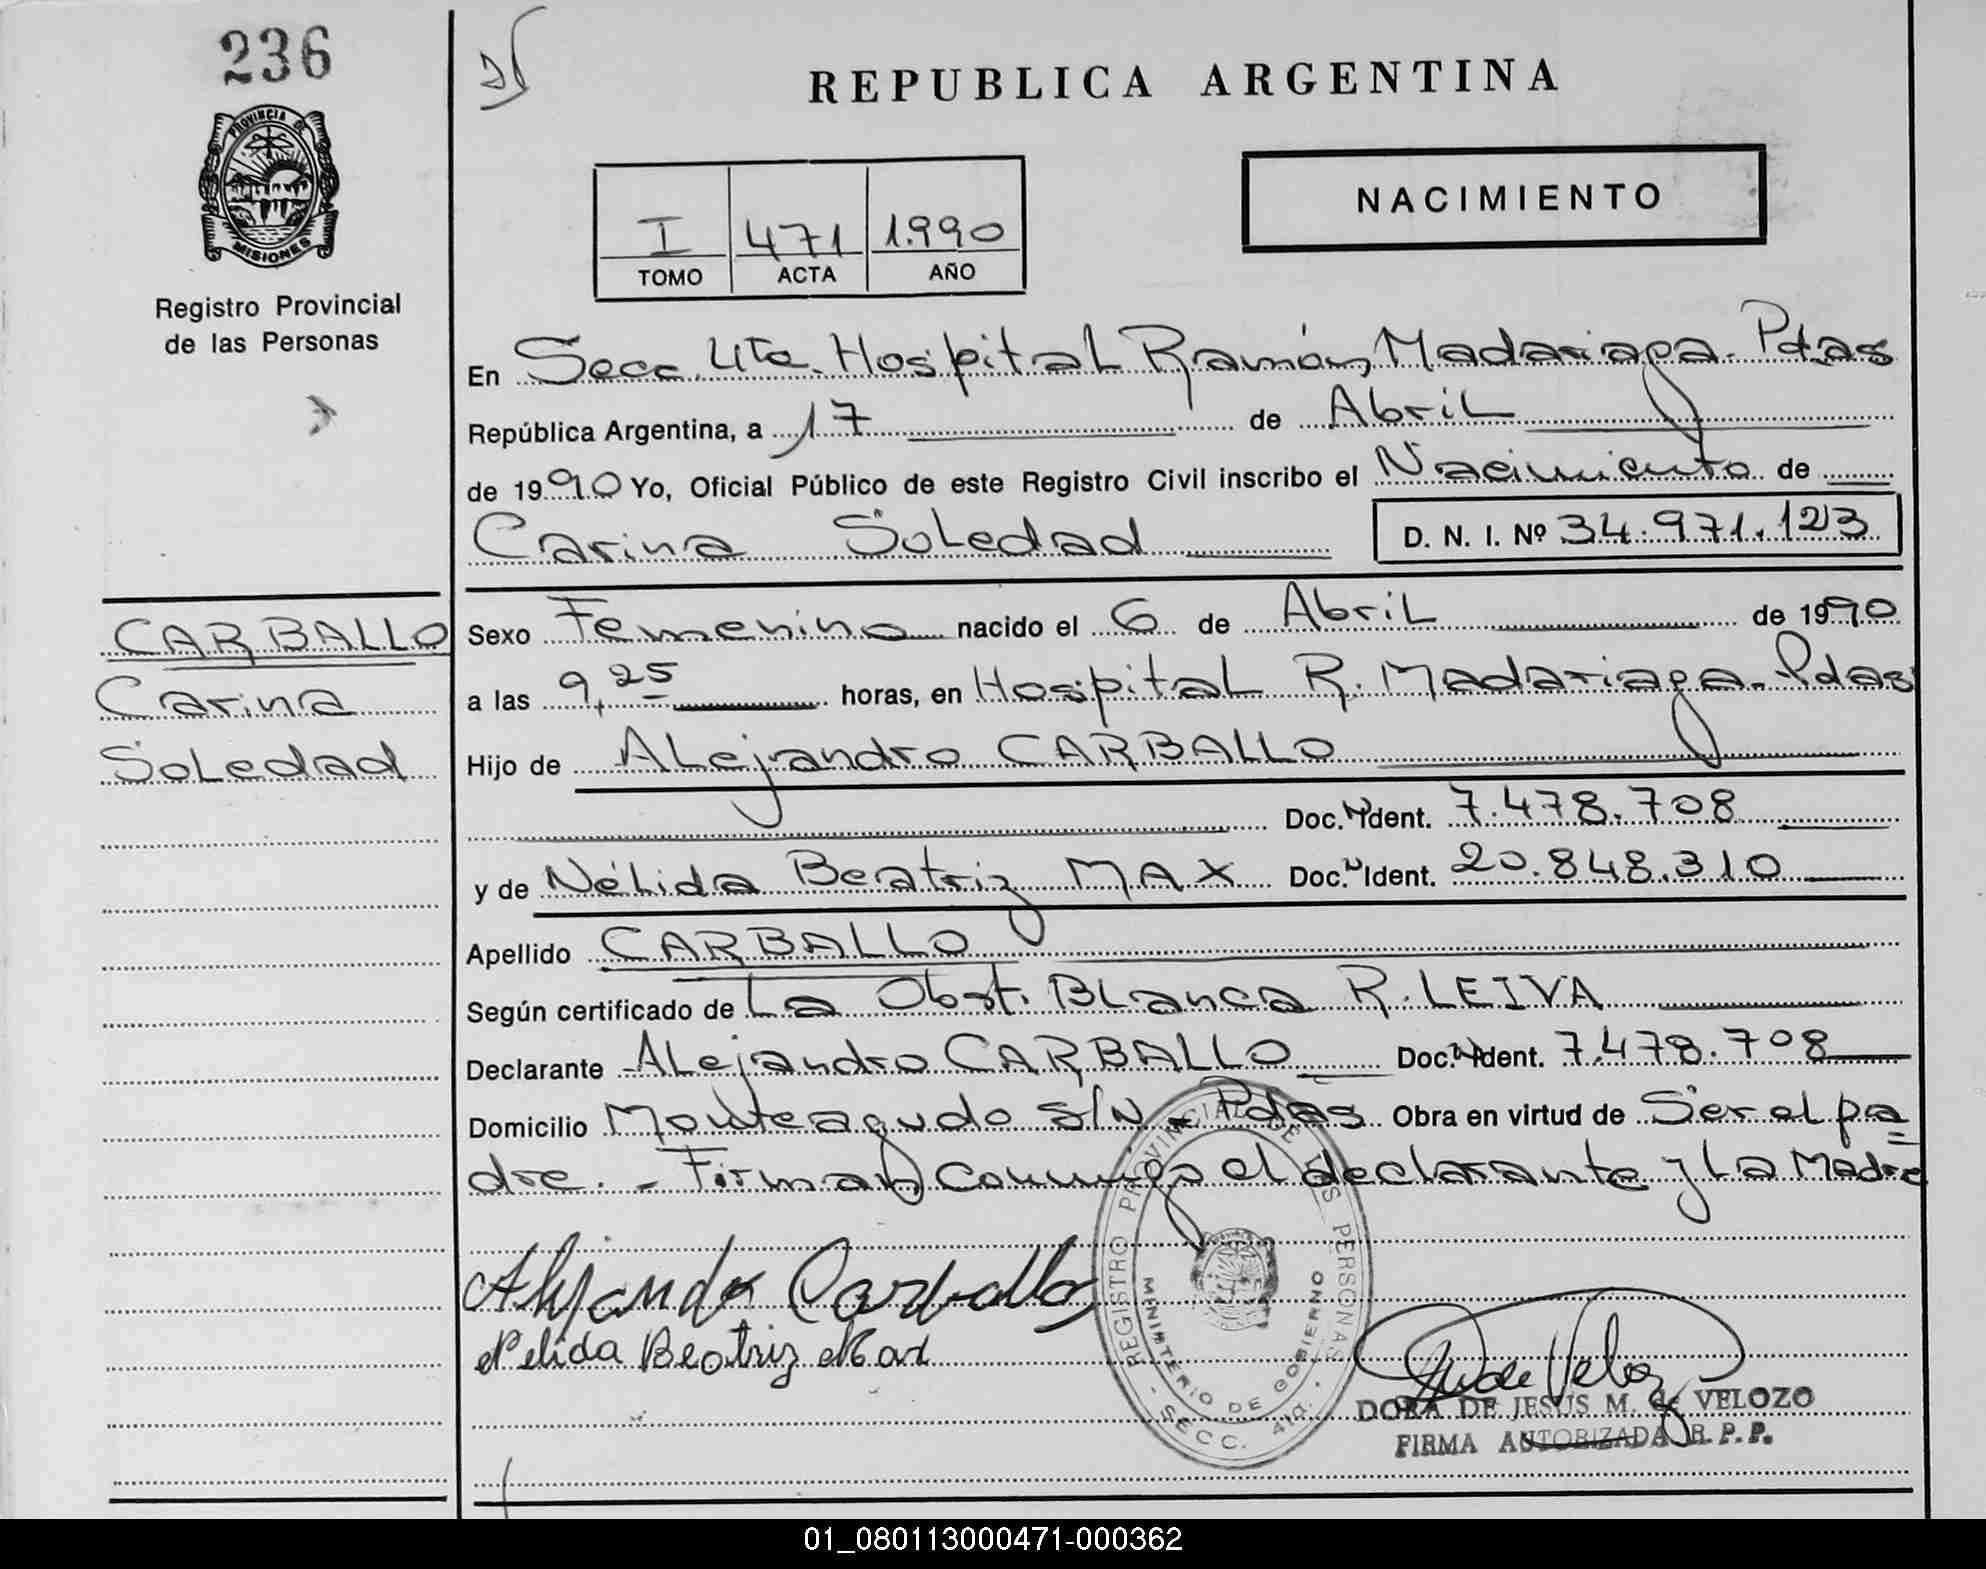 236
PROVINCIA DE
MISIONES
Registro Provincial
de las Personas
CARBALLO
Carina
Soledad
REPUBLICA ARGENTINA
I 471 1.990
TOMO ACTA AÑO
NACIMIENTO
En Secc. 4ta. Hospital Ramón Madariaga. Pdas
República Argentina, a 17 de Abril
de 1990 Yo, Oficial Público de este Registro Civil inscribo el Nacimiento de
Carina Soledad D. N. I. Nº 34.971.123
Sexo Femenino nacido el 6 de Abril de 1990
a las 9,25 horas, en Hospital R. Madariaga. Pdas
Hijo de Alejandro CARBALLO
Doc. N Ident. 7.478.708
y de Nélida Beatriz MAX Doc. N Ident. 20.848.310
Apellido CARBALLO
Según certificado de La Obst. Blanca R. LEIVA
Declarante Alejandro CARBALLO Doc. N Ident. 7.478.708
Domicilio Monteagudo s/N - Pdas Obra en virtud de Ser el pa
dre. - Firman conmigo el declarante y La Madre
Alejandro Carballo
Nelida Beatriz Max
REGISTRO PROVINCIAL DE LAS PERSONAS
MINISTERIO DE GOBIERNO
- SECC. 4ta. -
DORA DE JESUS M. de VELOZO
FIRMA AUTORIZADA R.P.P.
01_080113000471-000362